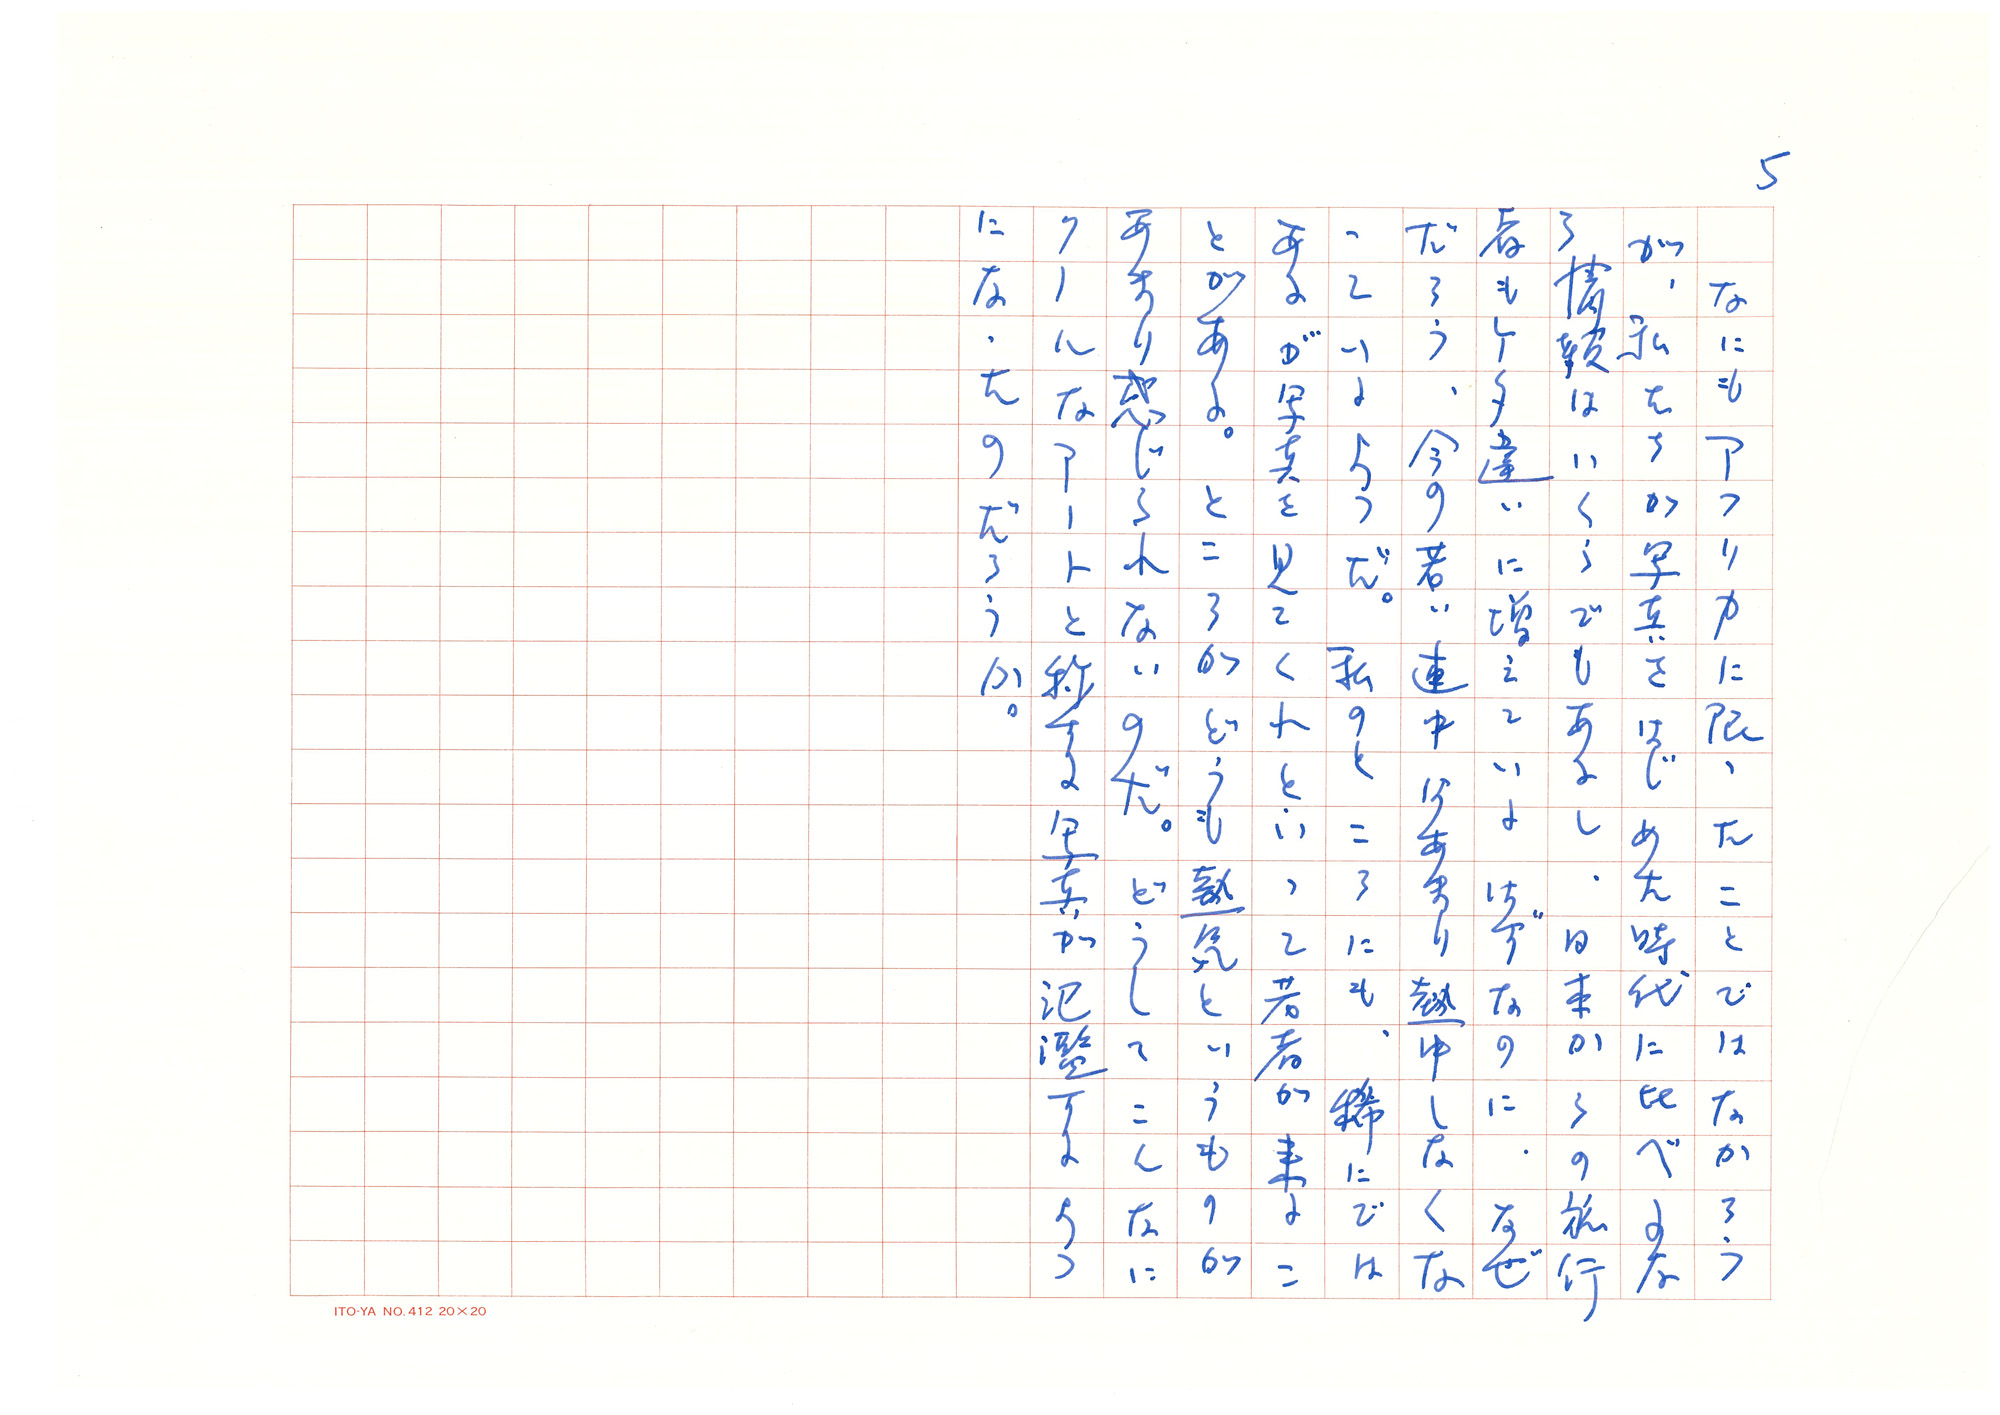 5
なにもアフリカに限ったことではなかろう
が、私たちが写真をはじめた時代に比べるな
ら情報はいくらでもあるし、日本からの旅行
者もケタ違いに増えているはずなのに、なぜ
だろう、今の若い連中はあまり熱中しなくな
っているようだ。私のところにも、稀にでは
あるが写真を見てくれといって若者が来るこ
とがある。ところがどうも熱気というものが
あまり感じられないのだ。どうしてこんなに
クールなアートと称する写真が氾濫するよう
になったのだろうか。
ITO-YA NO.412 20×20